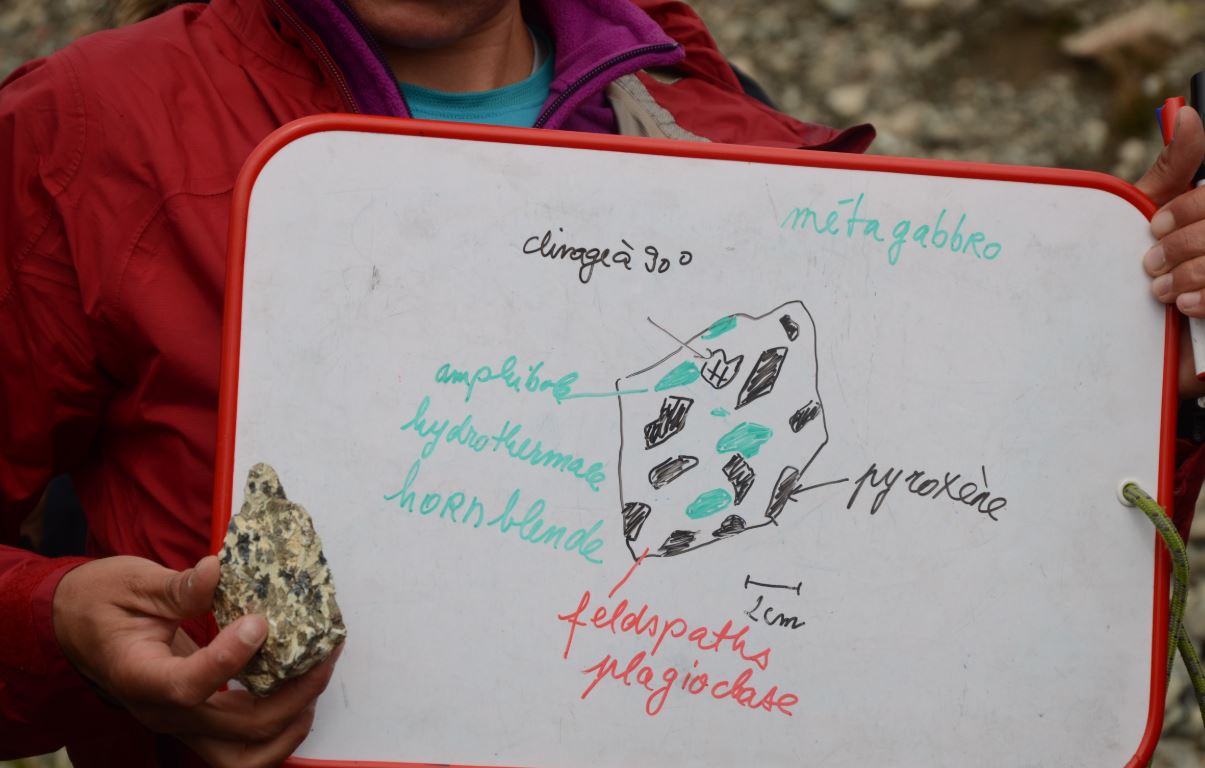 métagabbro
clivage à 90°
amphibole
hydrothermale
hornblende
pyroxène
1cm
feldspaths
plagioclase